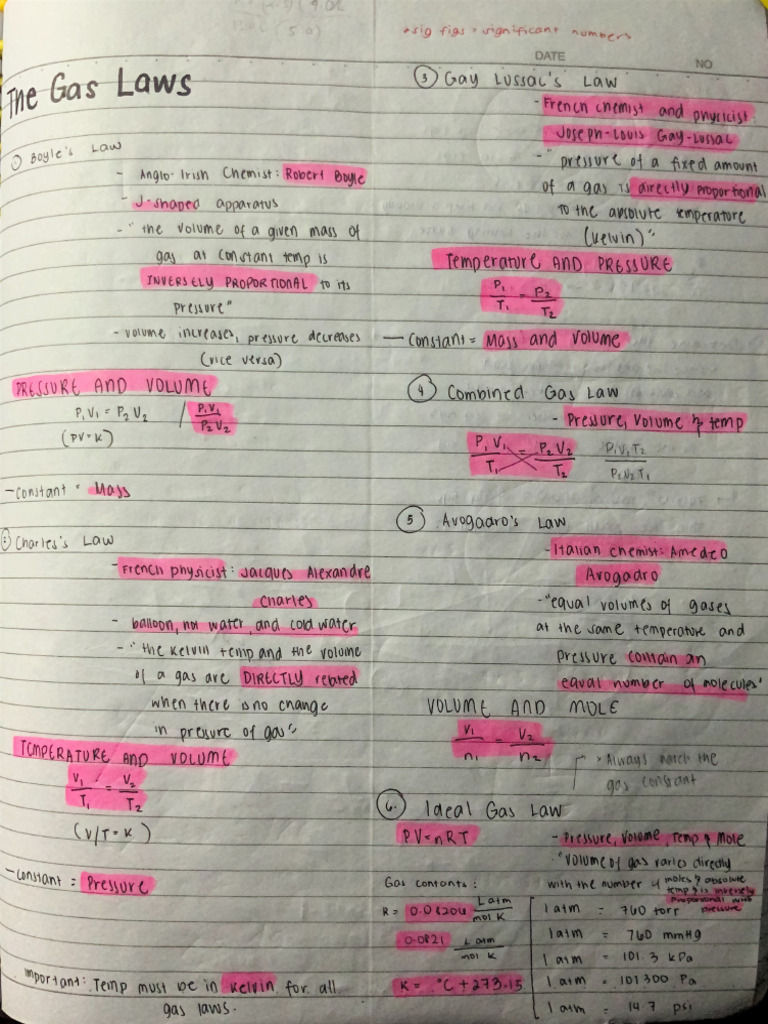 *sig figs = significant numbers
DATE
NO
The Gas Laws
① Boyle's Law
- Anglo-Irish Chemist: Robert Boyle
- J-shaped apparatus
- "the volume of a given mass of
gas at constant temp is
INVERSELY PROPORTIONAL to its
pressure"
- volume increases, pressure decreases
(vice versa)
PRESSURE AND VOLUME
P₁V₁ = P₂V₂ / P₁V₁/P₂V₂
(PV=K)
- Constant = Mass
② Charles's Law
- French physicist: Jacques Alexandre
Charles
- balloon, hot water, and cold water
- "the Kelvin temp and the volume
of a gas are DIRECTLY related
when there is no change
in pressure of gas"
TEMPERATURE AND VOLUME
V₁/T₁ = V₂/T₂
(V/T=K)
- Constant = Pressure
Important: Temp must be in Kelvin for all
gas laws.
③ Gay Lussac's Law
- French chemist and physicist:
Joseph-Louis Gay-Lussac
- "pressure of a fixed amount
of a gas is directly proportional
to the absolute temperature
(Kelvin)"
Temperature AND PRESSURE
P₁/T₁ = P₂/T₂
- Constant = Mass and Volume
④ Combined Gas Law
- Pressure, Volume & temp
P₁V₁/T₁ = P₂V₂/T₂ P₁V₁T₂/P₂V₂T₁
⑤ Avogadro's Law
- Italian chemist: Amedeo
Avogadro
- "equal volumes of gases
at the same temperature and
pressure contain an
equal number of molecules"
VOLUME AND MOLE
V₁/n₁ = V₂/n₂
*Always match the
gas constant
⑥ Ideal Gas Law
PV=nRT
- Pressure, Volume, Temp & Mole
"Volume of gas varies directly
with the number of moles & absolute
temp & is inversely
proportional with
pressure
Gas contants:
R = 0.08206 L atm/mol K
0.0821 L atm/mol K
K = °C + 273.15
1 atm = 760 torr
1 atm = 760 mmHg
1 atm = 101.3 kPa
1 atm = 101300 Pa
1 atm = 14.7 psi